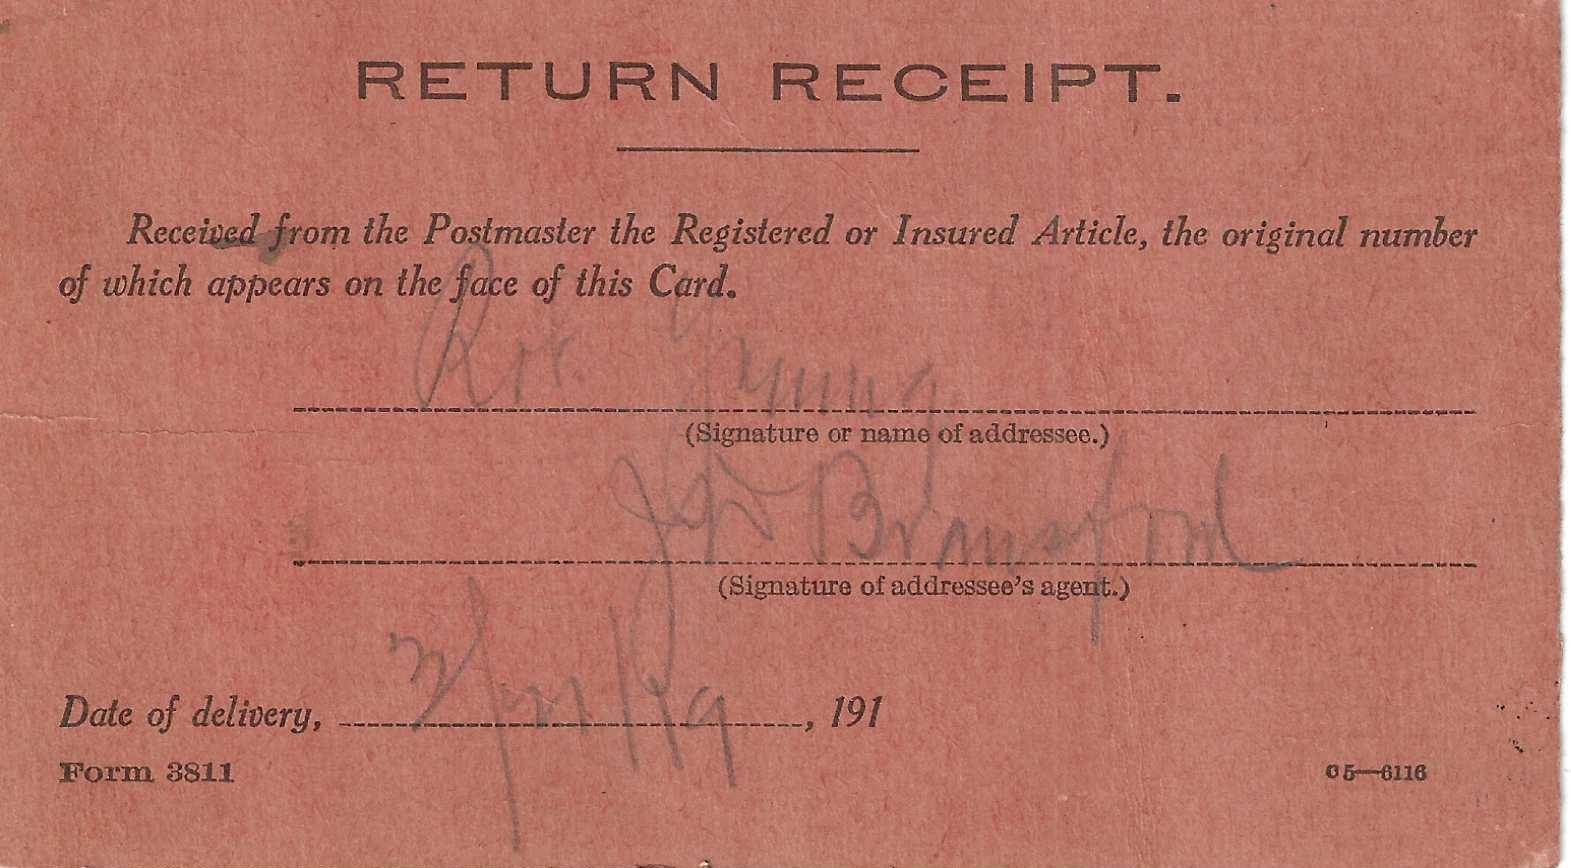 RETURN RECEIPT.
Received from the Postmaster the Registered or Insured Article, the original number
of which appears on the face of this Card.
Young
(Signature or name of addressee.)
Bransford
(Signature of addressee's agent.)
Date of delivery, , 191
Form 3811 05—6116